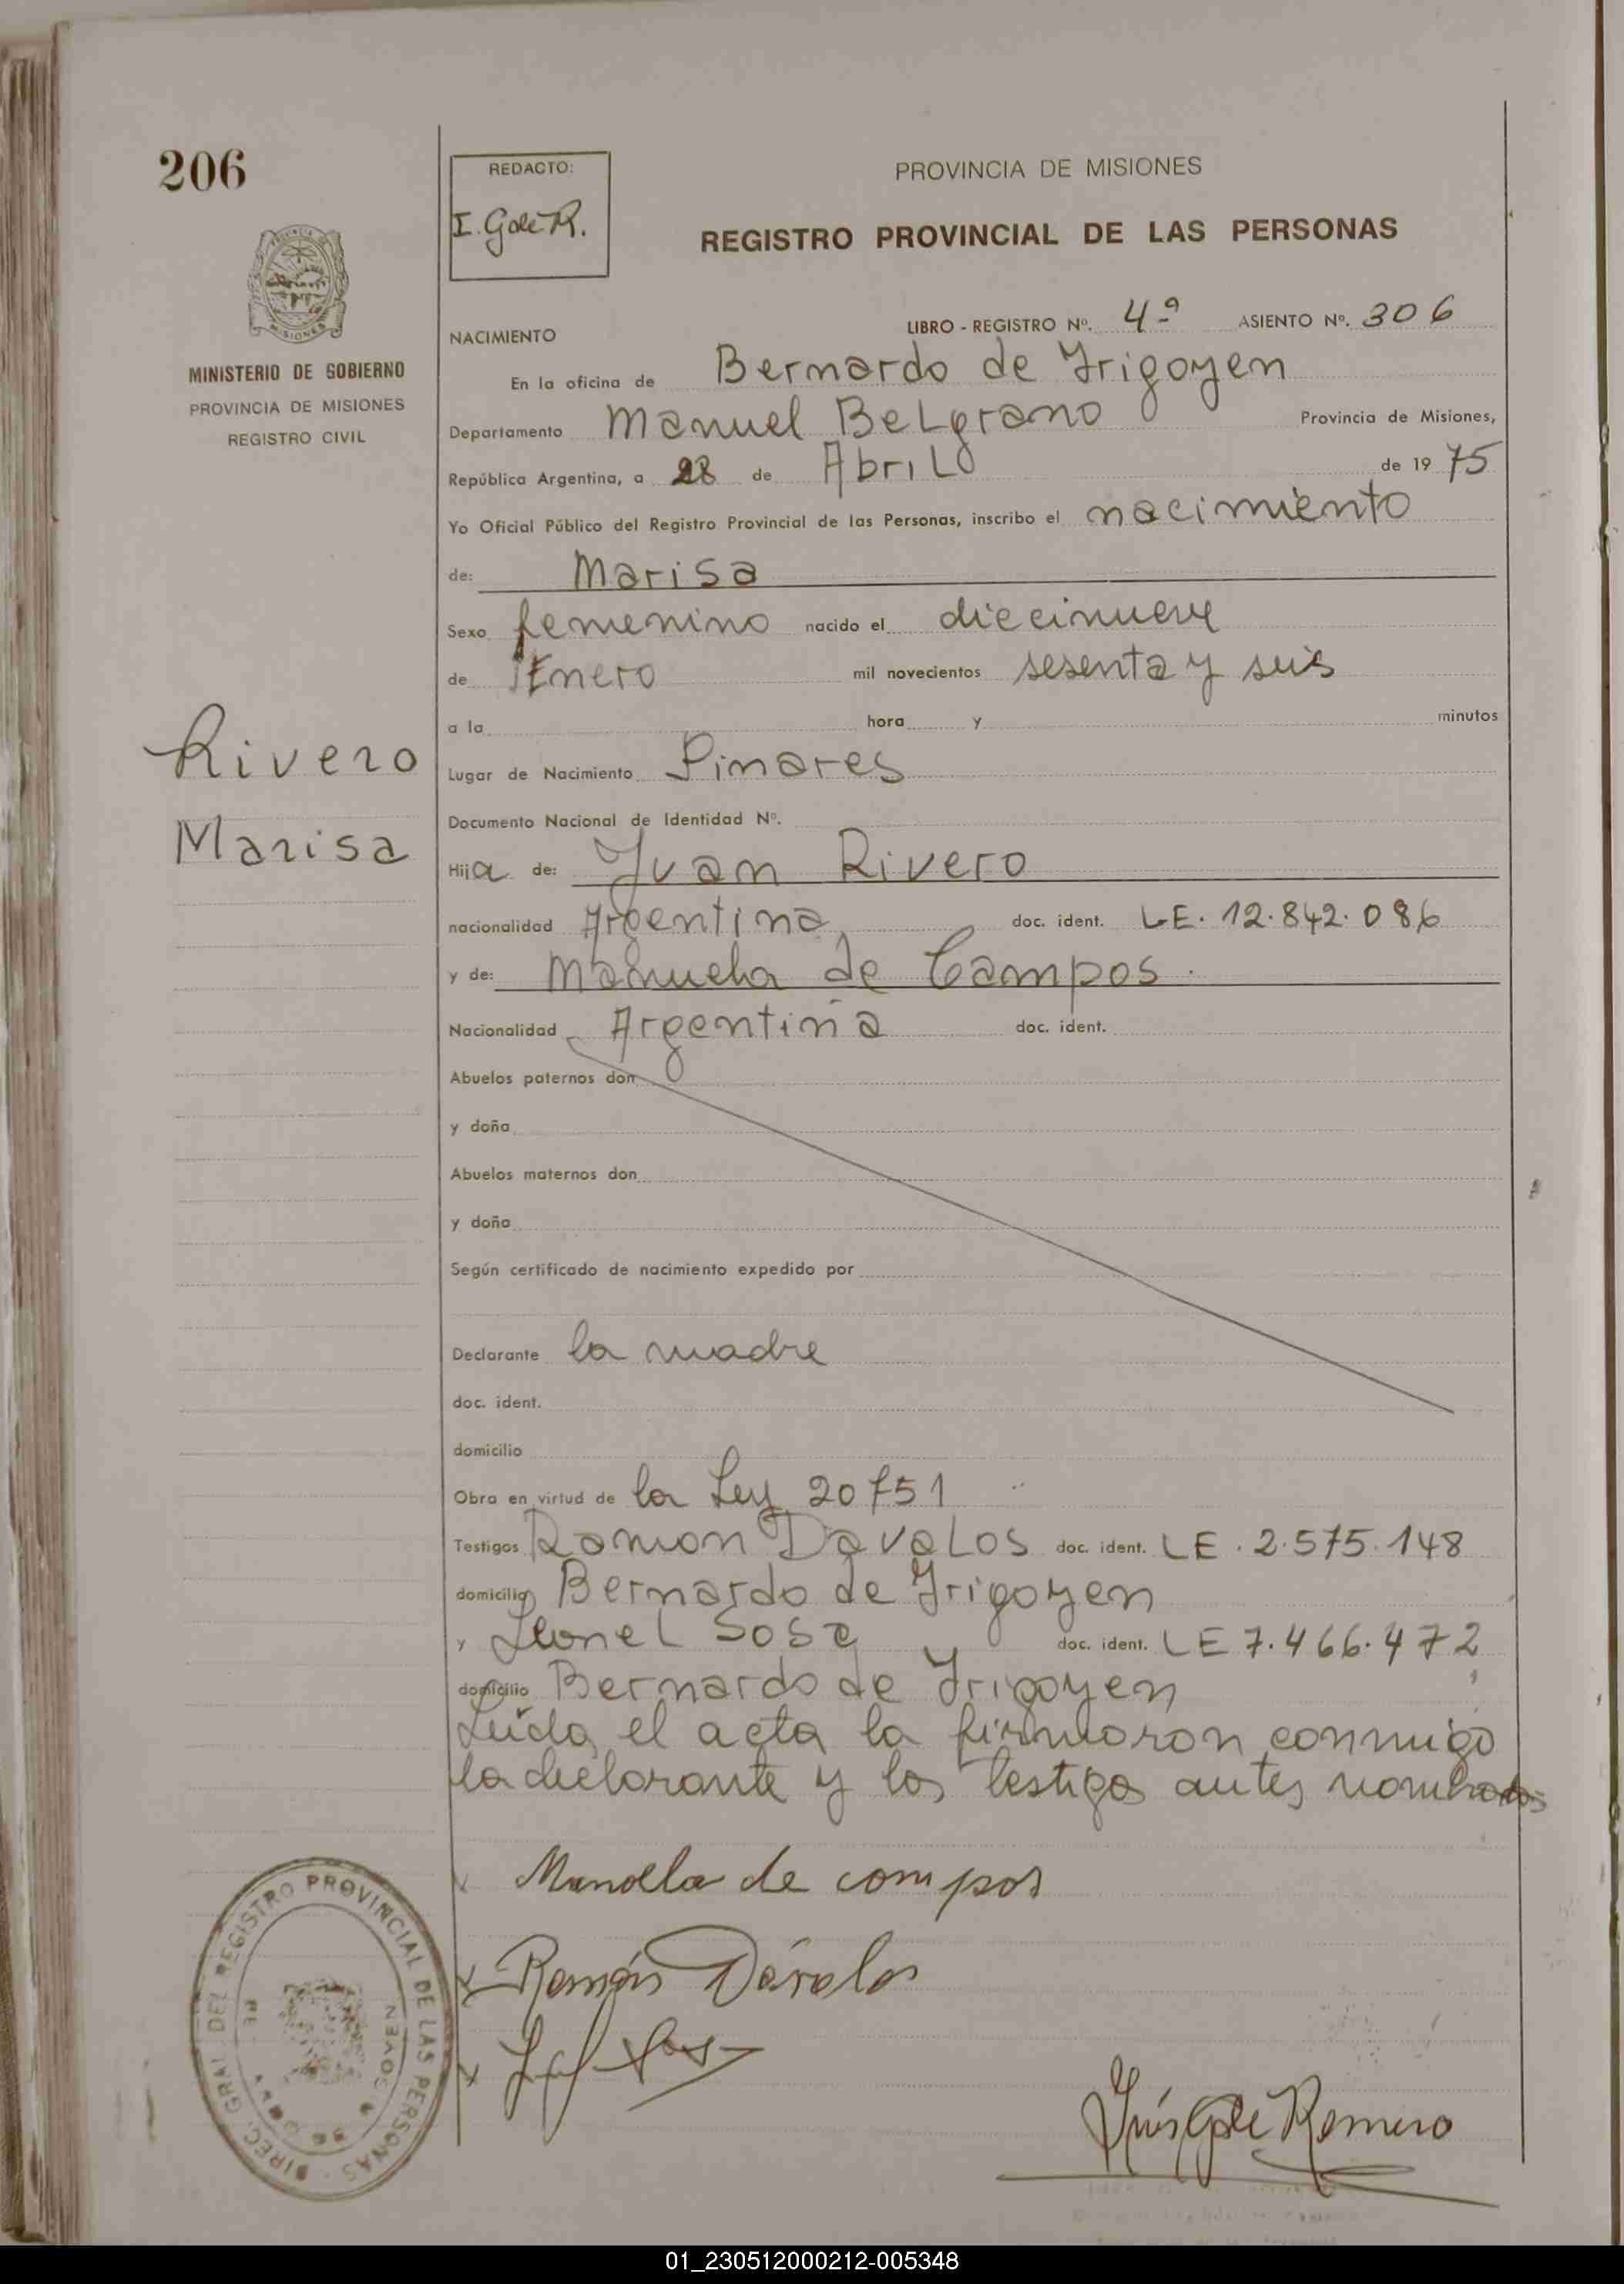 206
REDACTO:
I. G de R.
PROVINCIA DE MISIONES
REGISTRO PROVINCIAL DE LAS PERSONAS
MINISTERIO DE GOBIERNO
PROVINCIA DE MISIONES
REGISTRO CIVIL
NACIMIENTO
LIBRO - REGISTRO Nº. 4º ASIENTO Nº. 306
En la oficina de Bernardo de Irigoyen
Departamento Manuel Belgrano Provincia de Misiones,
República Argentina, a 28 de Abril de 1975
Yo Oficial Público del Registro Provincial de las Personas, inscribo el nacimiento
de: Marisa
Sexo femenino nacido el diecinueve
de Enero mil novecientos sesenta y seis
a la hora y minutos
Rivero
Marisa
Lugar de Nacimiento Pinares
Documento Nacional de Identidad Nº.
Hija de: Juan Rivero
nacionalidad Argentina doc. ident. LE. 12.842.086
y de: Manuela de Campos.
Nacionalidad Argentina doc. ident.
Abuelos paternos don
y doña
Abuelos maternos don
y doña
Según certificado de nacimiento expedido por
Declarante la madre
doc. ident.
domicilio
Obra en virtud de la Ley 20751
Testigos Ramon Davalos doc. ident. LE. 2.575.148
domicilio Bernardo de Irigoyen
y Leonel Sosa doc. ident. LE 7.466.472
domicilio Bernardo de Irigoyen
Leida el acta la firmaron conmigo
la declarante y los testigos antes nombrados
Manoela de campos
Ramón Dávalos
Inés G de Romero
DIREC. GRAL. DEL REGISTRO PROVINCIAL DE LAS PERSONAS
01_230512000212-005348